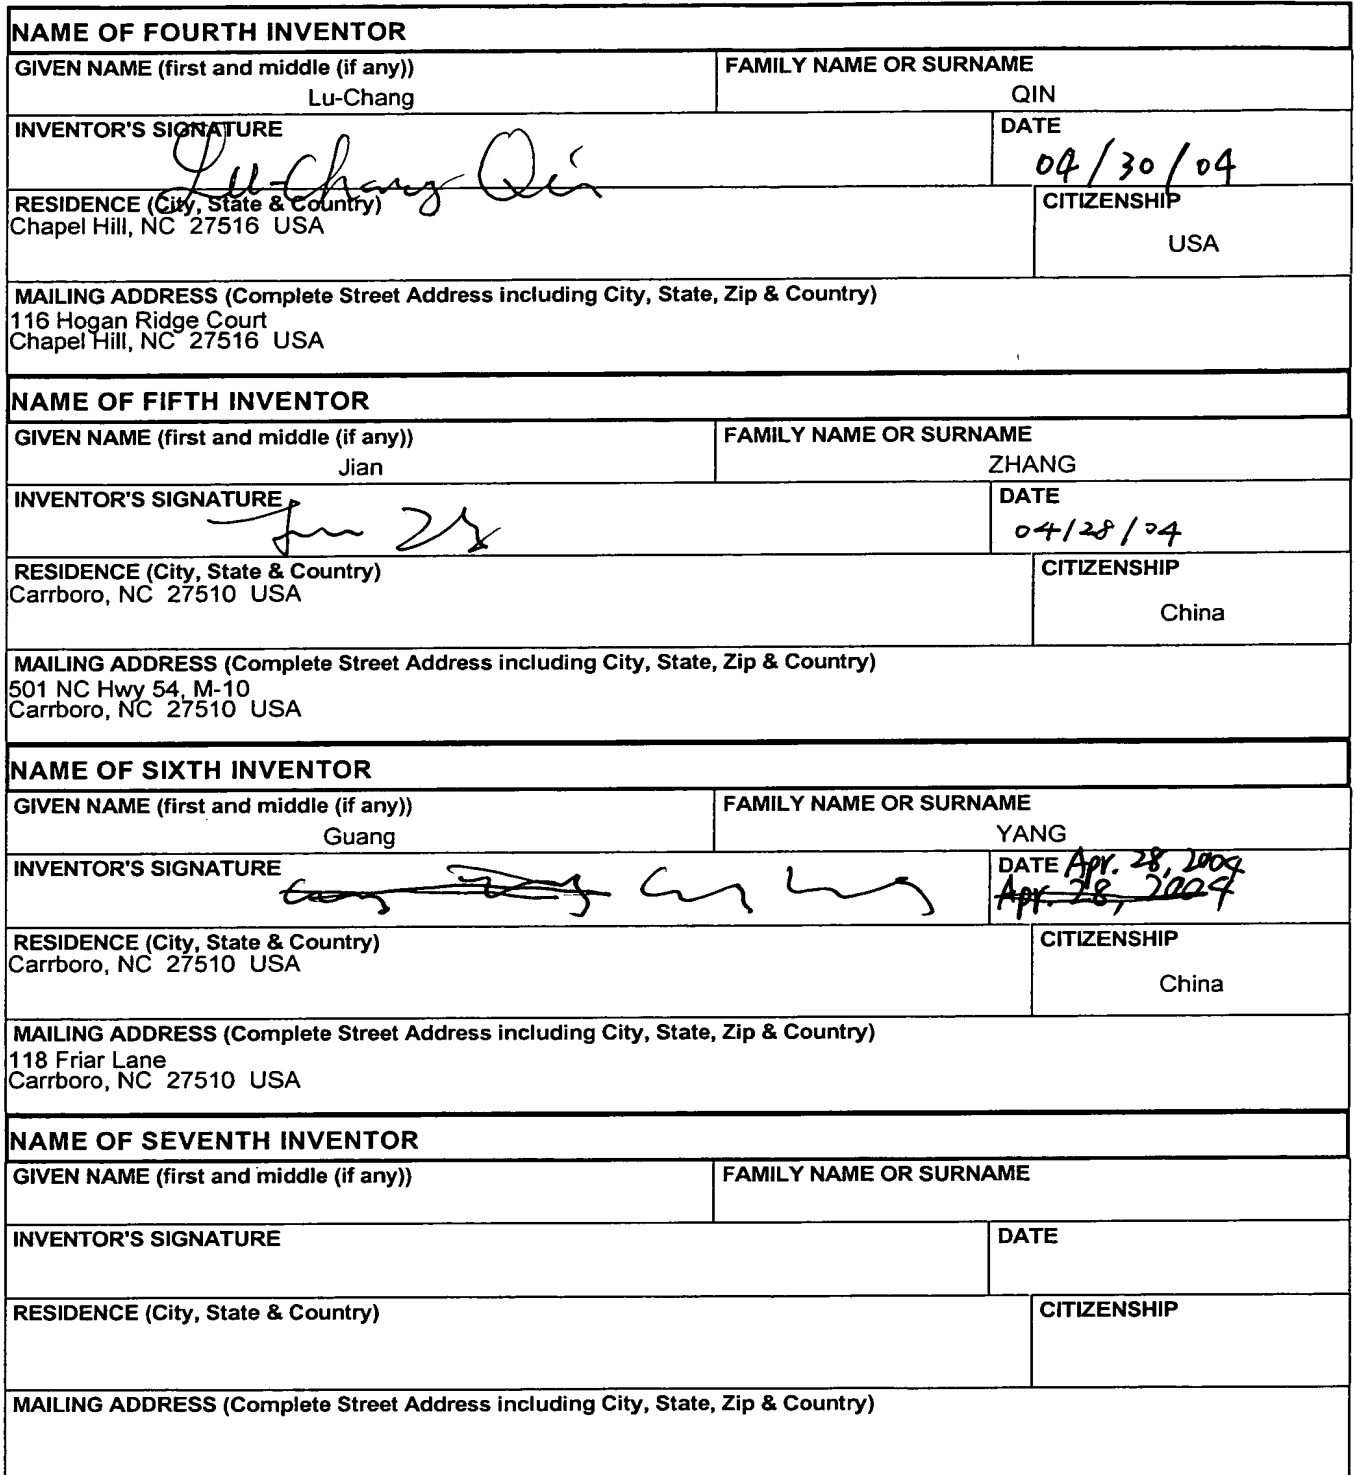 NAME OF FOURTH INVENTOR
GIVEN NAME (first and middle (if any))
Lu-Chang
FAMILY NAME OR SURNAME
QIN
INVENTOR'S SIGNATURE
Lu-Chang Qin
DATE
04/30/04
RESIDENCE (City, State & Country)
Chapel Hill, NC 27516 USA
CITIZENSHIP
USA
MAILING ADDRESS (Complete Street Address including City, State, Zip & Country)
116 Hogan Ridge Court
Chapel Hill, NC 27516 USA
NAME OF FIFTH INVENTOR
GIVEN NAME (first and middle (if any))
Jian
FAMILY NAME OR SURNAME
ZHANG
INVENTOR'S SIGNATURE
DATE
04/28/04
RESIDENCE (City, State & Country)
Carrboro, NC 27510 USA
CITIZENSHIP
China
MAILING ADDRESS (Complete Street Address including City, State, Zip & Country)
501 NC Hwy 54, M-10
Carrboro, NC 27510 USA
NAME OF SIXTH INVENTOR
GIVEN NAME (first and middle (if any))
Guang
FAMILY NAME OR SURNAME
YANG
INVENTOR'S SIGNATURE
DATE Apr. 28, 2004
Apr. 28, 2004
RESIDENCE (City, State & Country)
Carrboro, NC 27510 USA
CITIZENSHIP
China
MAILING ADDRESS (Complete Street Address including City, State, Zip & Country)
118 Friar Lane
Carrboro, NC 27510 USA
NAME OF SEVENTH INVENTOR
GIVEN NAME (first and middle (if any))
FAMILY NAME OR SURNAME
INVENTOR'S SIGNATURE
DATE
RESIDENCE (City, State & Country)
CITIZENSHIP
MAILING ADDRESS (Complete Street Address including City, State, Zip & Country)